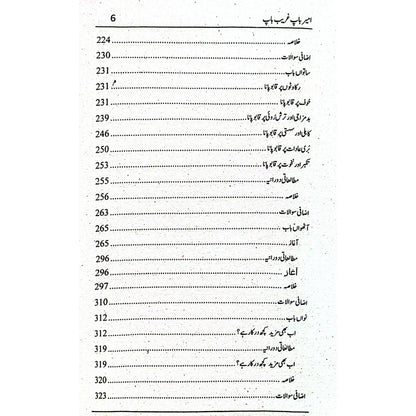 امیر باپ غریب باپ 6
خلاصہ 224
اضافی سوالات 230
ساتواں باب 231
رکاوٹوں پر قابو پانا 231
خوف پر قابو پانا
بدمزاجی اور ترش روئی پر قابو پانا 239
کاہلی اور سستی پر قابو پانا 246
بُری عادات پر قابو پانا 250
تکبر اور نخوت پر قابو پانا 253
مطالعاتی دورانیہ 255
خلاصہ 256
اضافی سوالات 263
آٹھواں باب 265
آغاز 265
مطالعاتی دورانیہ 296
آغاز 296
خلاصہ 297
اضافی سوالات 310
نواں باب 312
اب بھی مزید کچھ درکار ہے؟ 312
مطالعاتی دورانیہ 319
اب بھی مزید کچھ درکار ہے؟ 319
خلاصہ 320
اضافی سوالات 323